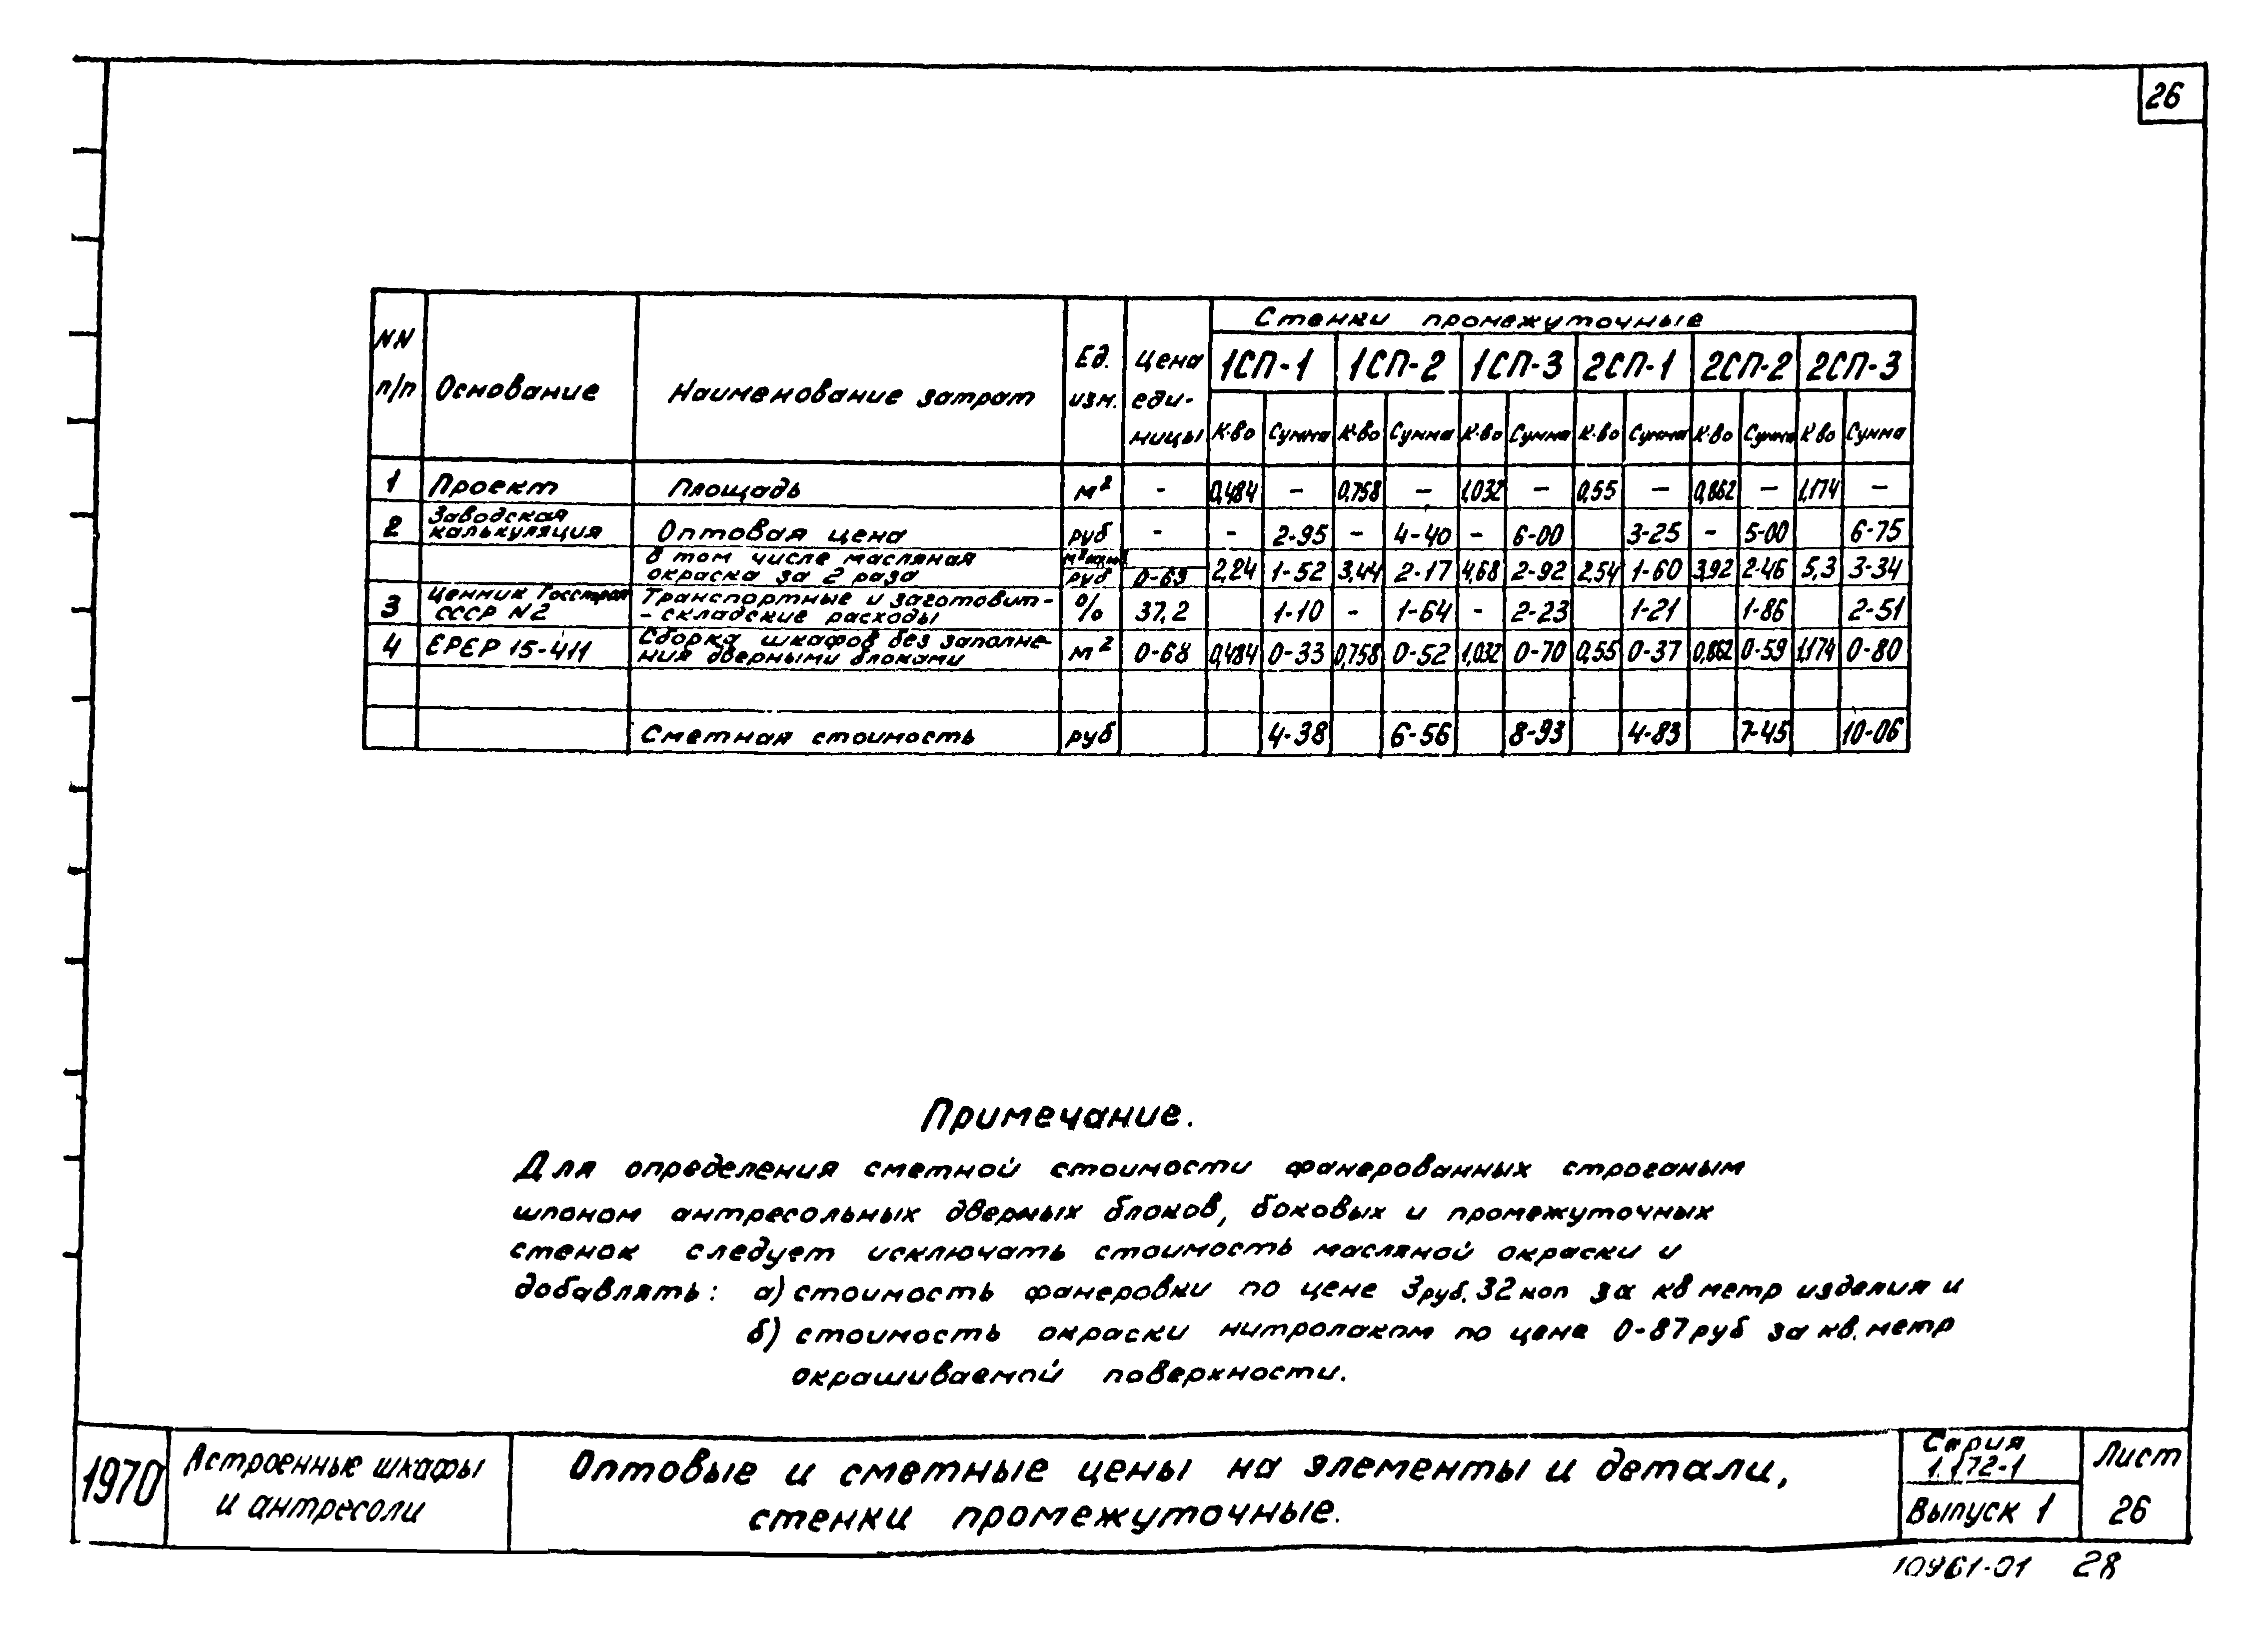 26
NN п/п Основание Наименование затрат Ед. изм. Цена едининицы Стенки промежуточные
1СП-1 1СП-2 1СП-3 2СП-1 2СП-2 2СП-3
К-во Сумма К-во Сумма К-во Сумма К-во Сумма К-во Сумма К-во Сумма
1 Проект Площадь м² - 0,484 - 0,758 - 1,032 - 0,55 - 0,862 - 1,174 -
2 Заводская калькуляция Оптовая цена руб - - 2-95 - 4-40 - 6-00 3-25 - 5-00 6-75
в том числе масляная окраска за 2 раза руб 0-63 2,24 1-52 3,44 2-17 4,68 2-92 2,54 1-60 3,92 2-46 5,3 3-34
3 Ценник Госстроя СССР N2 Транспортные и заготовит-
- складские расходы % 37,2 1-10 - 1-64 - 2-23 1-21 1-86 2-51
4 ЕРЕР 15-411 Сборка шкафов без заполне-
ния дверными блоками м² 0-68 0,484 0-33 0,758 0-52 1,032 0-70 0,55 0-37 0,862 0-59 1,174 0-80
Сметная стоимость руб 4-38 6-56 8-93 4-83 7-45 10-06
Примечание.
Для определения сметной стоимости фанерованных строганым
шпоном антресольных дверных блоков, боковых и промежуточных
стенок следует исключать стоимость масляной окраски и
добавлять: а) стоимость фанеровки по цене 3руб. 32 коп за кв метр изделия и
б) стоимость окраски нитролаком по цене 0-87 руб за кв. метр
окрашиваемой поверхности.
1970
Встроенные шкафы
и антресоли
Оптовые и сметные цены на элементы и детали,
стенки промежуточные.
Серия
1.172-1
Выпуск 1
Лист
26
10961-01 28